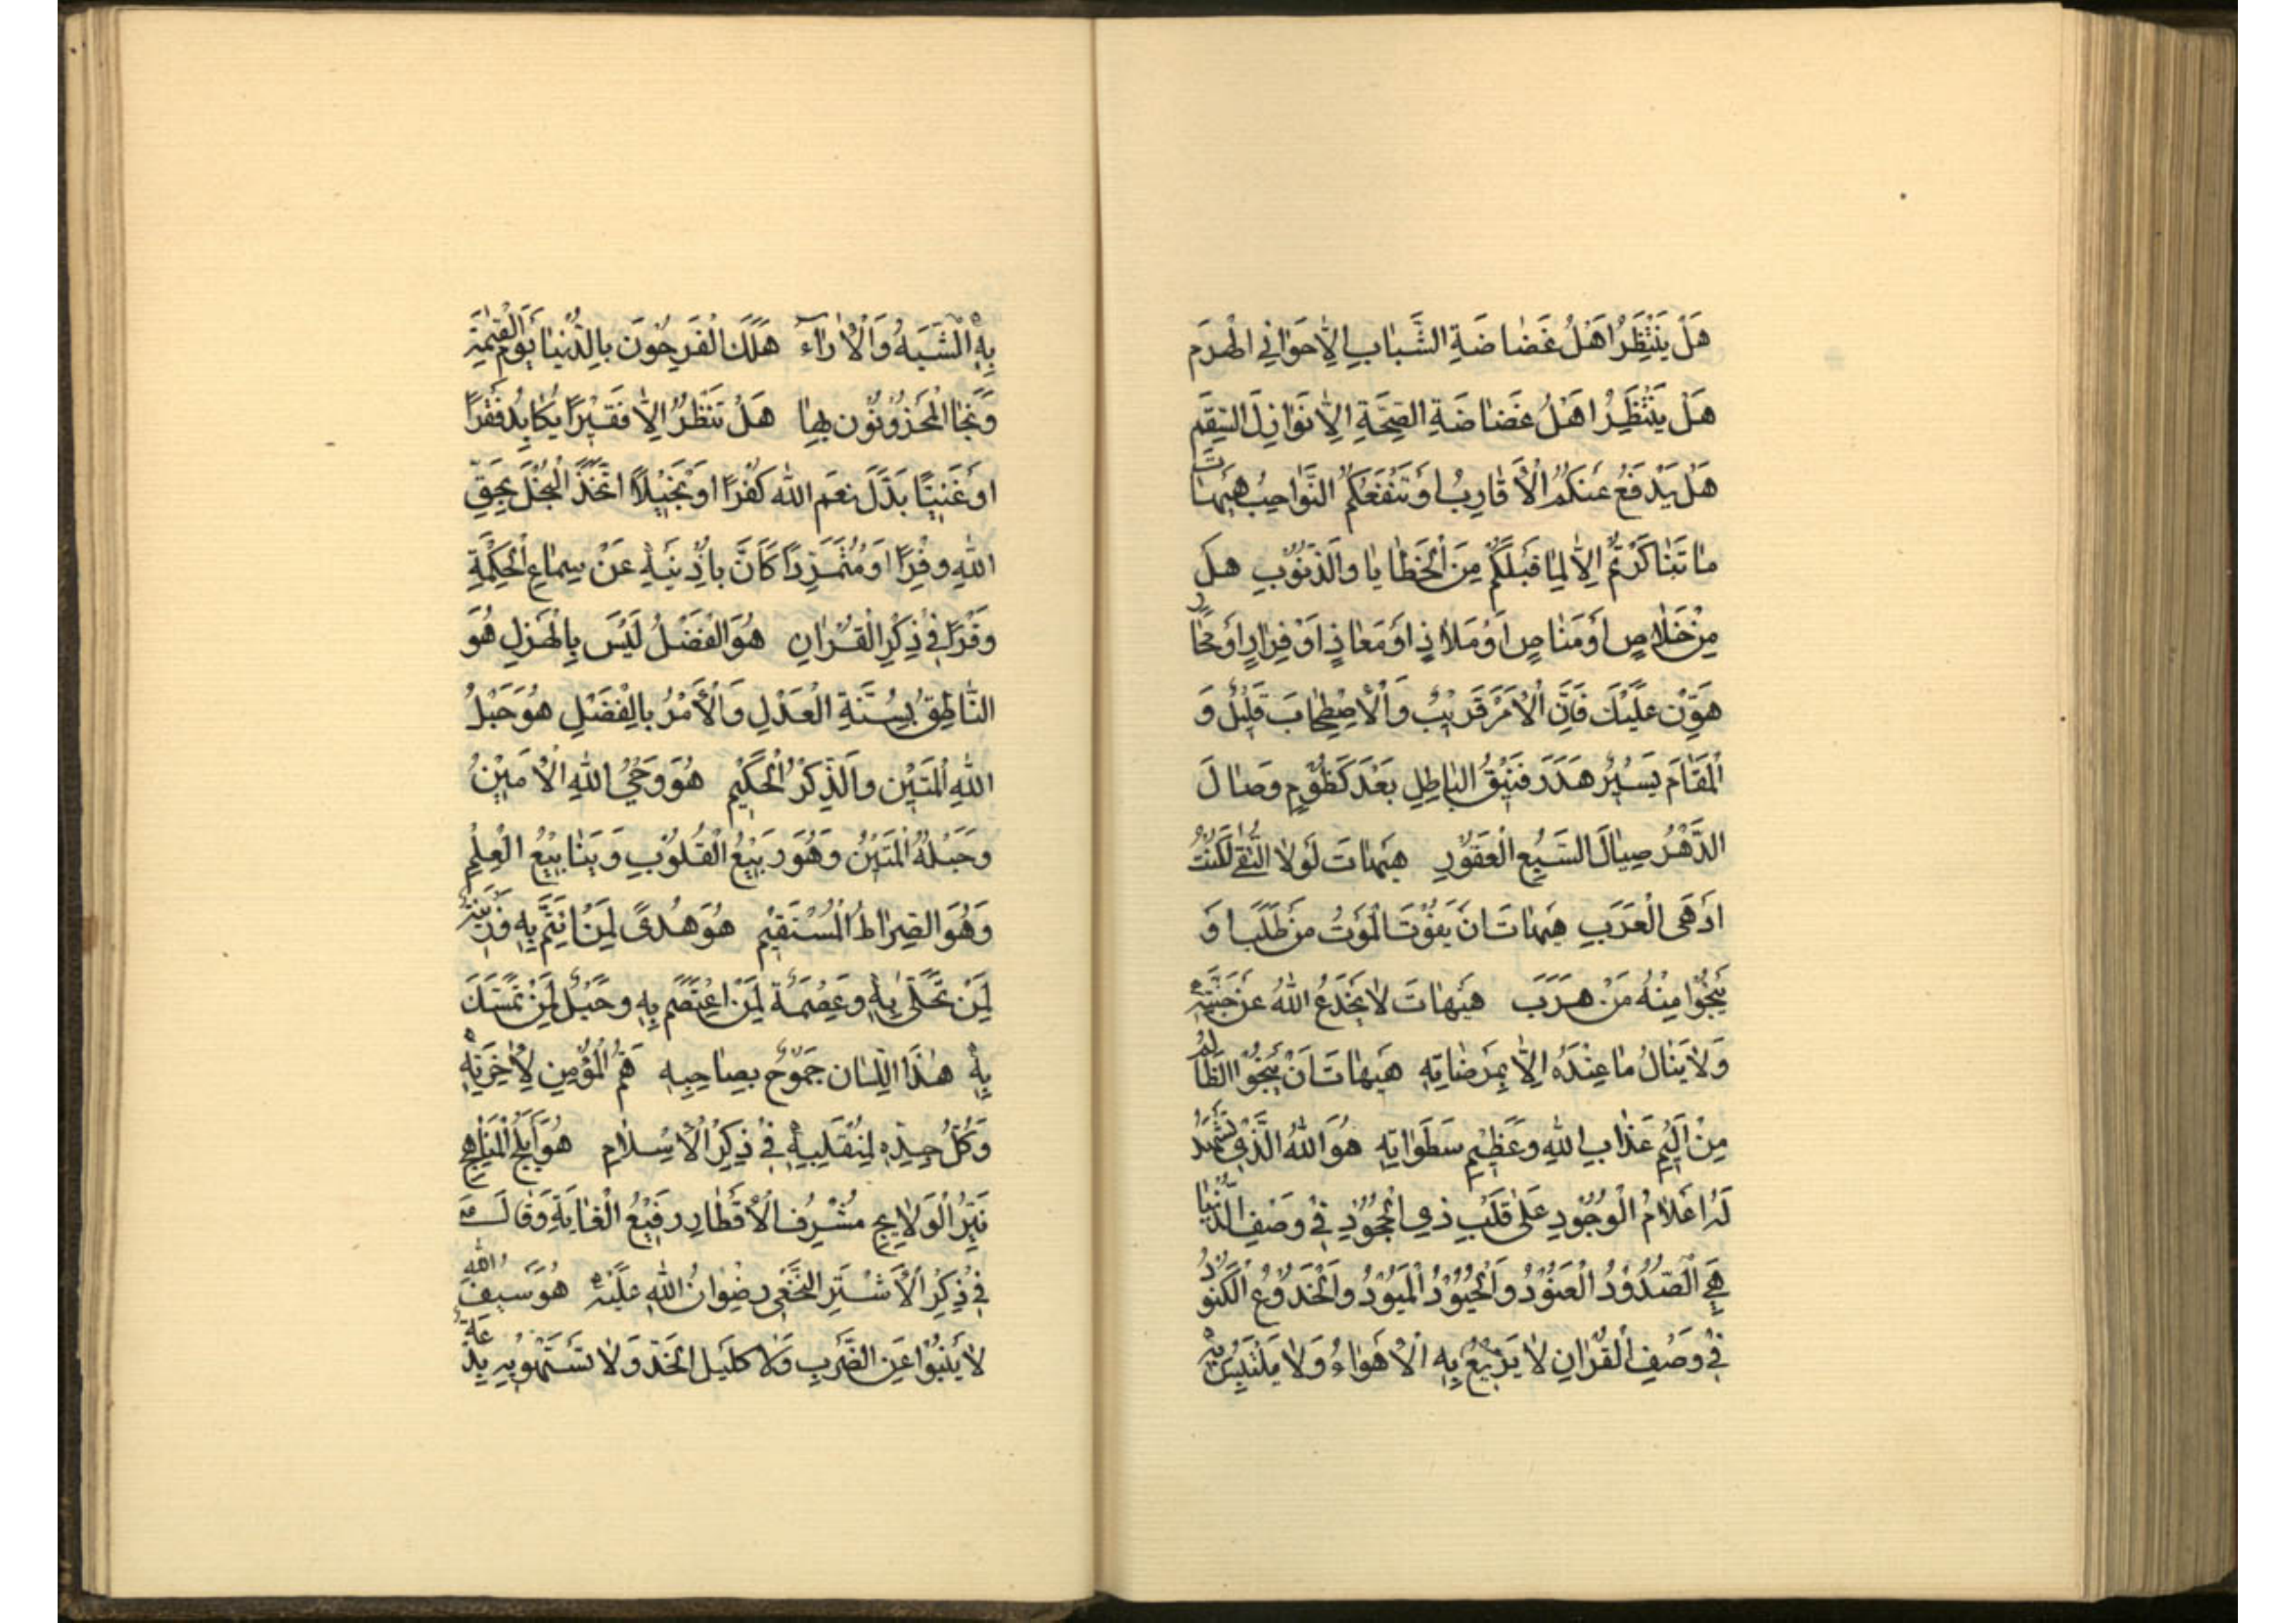 هَلْ يَنْتَظِرُ اَهْلُ غَضاضَةِ الشَّبابِ اِلاّ حَوٰانِي الْهَرَمِ
هَلْ يَنْتَظِرُ اَهْلُ غَضاضَةِ الصِّحَّةِ اِلاّ نَوٰازِلَ السَّقَمِ
هَلْ يَدْفَعُ عَنْكُمُ الْأَقارِبُ اَوْ تَنْفَعُكُمُ النَّوٰاحِبُ هَيْهاتَ
ما تَناكَرْتُمْ اِلاّ لِما قَبْلَكُمْ مِنَ الْخَطايا وَالذُّنُوبِ هَلْ
مِنْ خَلاصٍ اَوْ مَناصٍ اَوْ مَلاذٍ اَوْ مَعاذٍ اَوْ فِرارٍ اَوْ مَحارٍ
هَوِّنْ عَلَيْكَ فَاِنَّ الْاَمْرَ قَرِيْبٌ وَالْاِصْطِحابَ قَلِيْلٌ وَ
الْمَقامَ يَسِيْرٌ هَدَرَ فَنِيْقُ الْباطِلِ بَعْدَ كَظُوْمٍ وَصالَ
الدَّهْرُ صِيالَ السَّبُعِ الْعَقُوْرِ هَيْهاتَ لَوْلَا التُّقٰى لَكُنْتُ
اَدْهَى الْعَرَبِ هَيْهاتَ اَنْ يَفُوْتَ الْمَوْتُ مَنْ طَلَبَ اَوْ
يَنْجُوْا مِنْهُ مَنْ هَرَبَ هَيْهاتَ لا يُخْدَعُ اللهُ عَنْ جَنَّتِهِ
وَلا يُنالُ ما عِنْدَهُ اِلاّ بِمَرْضاتِهِ هَيْهاتَ اَنْ يَنْجُوْا الظّالِمُ
مِنْ اَلِيْمِ عَذابِ اللهِ وَعَظِيْمِ سَطَوٰاتِهِ هُوَ اللهُ الَّذِيْ تَشْهَدُ
لَهُ اَعْلامُ الْوُجُوْدِ عَلٰى قَلْبِ ذِي الْجُحُوْدِ فِيْ وَصْفِ الدُّنْيا
هِيَ الصَّدُوْدُ الْعَنُوْدُ وَالْحَيُوْدُ الْمَيُوْدُ وَالْخَدُوْعُ الْكَنُوْدُ
فِيْ وَصْفِ الْقُرْاٰنِ لا يَزِيْغُ بِهِ الْاَهْوٰاءُ وَلا يَلْتَبِسُ بِهِ
بِهِ الشُّبَهُ وَالْاٰرٰآءُ هَلَكَ الْفَرِحُوْنَ بِالدُّنْيا يَوْمَ الْقِيٰمَةِ
وَنَجَا الْمَحْزُوْنُوْنَ بِها هَلْ تَنْظُرُ اِلاّ فَقِيْرًا يُكابِدُ فَقْرًا
اَوْ غَنِيًّا بَدَّلَ نِعَمَ اللهِ كُفْرًا اَوْ بَخِيْلاً اتَّخَذَ الْبُخْلَ بِحَقِّ
اللهِ وَفْرًا اَوْ مُتَمَرِّدًا كَاَنَّ بِاُذُنَيْهِ عَنْ سِماعِ الْحِكْمَةِ
وَقْرًا فِيْ ذِكْرِ الْقُرْاٰنِ هُوَ الْفَضْلُ لَيْسَ بِالْهَزْلِ هُوَ
النّاطِقُ بِسُنَّةِ الْعَدْلِ وَالْأَمْرُ بِالْفَضْلِ هُوَ حَبْلُ
اللهِ الْمَتِيْنِ وَالذِّكْرُ الْحَكِيْمِ هُوَ وَحْيُ اللهِ الْاَمِيْنُ
وَحَبْلُهُ الْمَتِيْنُ وَهُوَ رَبِيْعُ الْقُلُوْبِ وَيَنابِيْعُ الْعِلْمِ
وَهُوَ الصِّراطُ الْمُسْتَقِيْمِ هُوَ هُدًى لِمَنِ ائْتَمَّ بِهِ وَزِيْنَةٌ
لِمَنْ تَحَلّٰى بِهِ وَعِصْمَةٌ لِمَنِ اعْتَصَمَ بِهِ وَحَبْلٌ لِمَنْ تَمَسَّكَ
بِهِ هٰذَا اللِّسانِ جَمُوْحٌ بِصاحِبِهِ هَمُّ الْمُؤْمِنِ لِاٰخِرَتِهِ
وَكُلُّ جِدِّهِ لِمُنْقَلَبِهِ فِيْ ذِكْرِ الْاِسْلامِ هُوَ اَبْلَجُ الْمَناهِجِ
نَيِّرُ الْوَلايِجِ مُشْرِفُ الْاَقْطارِ رَفِيْعُ الْغايَةِ وَقالَ عَ
فِيْ ذِكْرِ الْأَشْتَرِ النَّخَعِي رِضْوانُ اللهِ عَلَيْهِ هُوَ سَيْفُ اللهِ
لا يَنْبُوْا عَنِ الضَّرْبِ وَلا كَلِيْلَ الْحَدِّ وَلا تَسْتَهْوِيْهِ بِدْعَةٌ